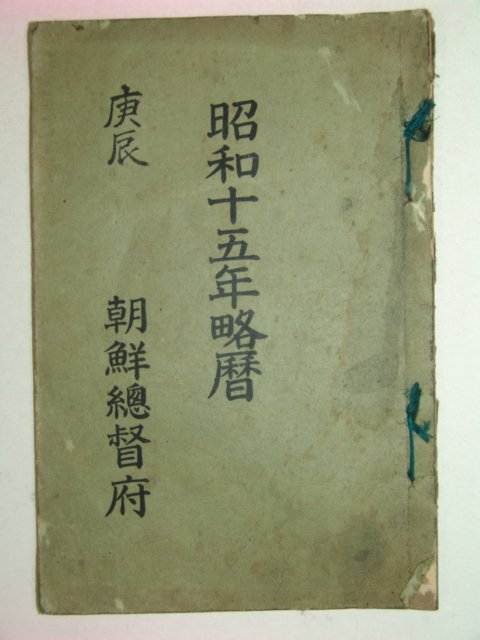 昭和十五年略暦
庚辰
朝鮮總督府